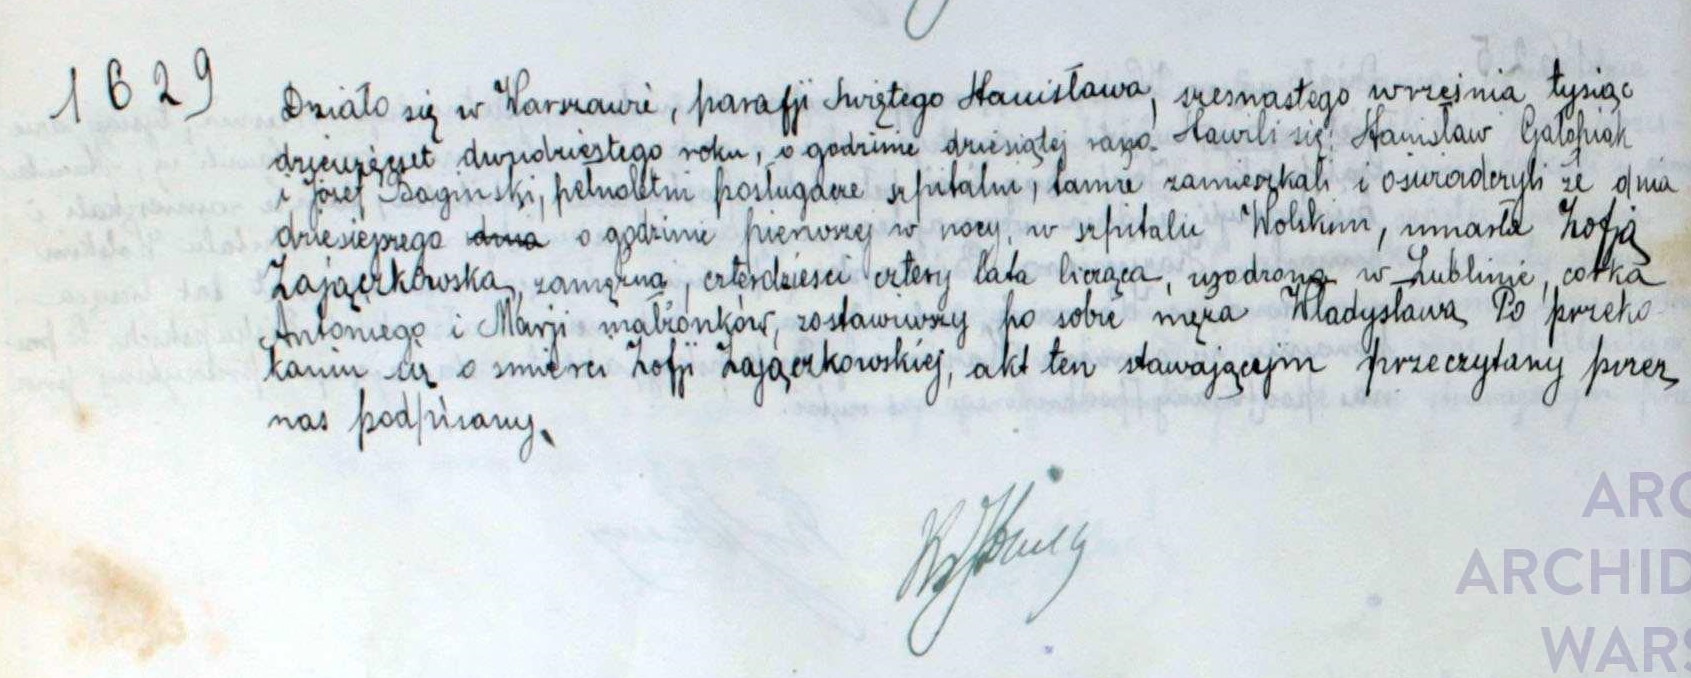 1629
Działo się w Warszawie, parafji Świętego Stanisława, szesnastego września tysiąc
dziewięćset dwudziestego roku, o godzinie dziesiątej rano. Stawili się: Stanisław Gałopiak
i Józef Bagiński, pełnoletni posługacze szpitalni, tamże zamieszkali i oświadczyli że dnia
dziesiejszego dnia o godzinie pierwszej w nocy, w szpitalu Wolskim, umarła Zofja
Zajączkowska, zamężna, czterdzieści cztery lata licząca, urodzona w Lublinie, córka
Antoniego i Marji małżonków, zostawiwszy po sobie męża Władysława. Po przeko
naniu się o śmierci Zofji Zajączkowskiej, akt ten stawającym przeczytany przez
nas podpisany.
ARC
ARCHID
WARS